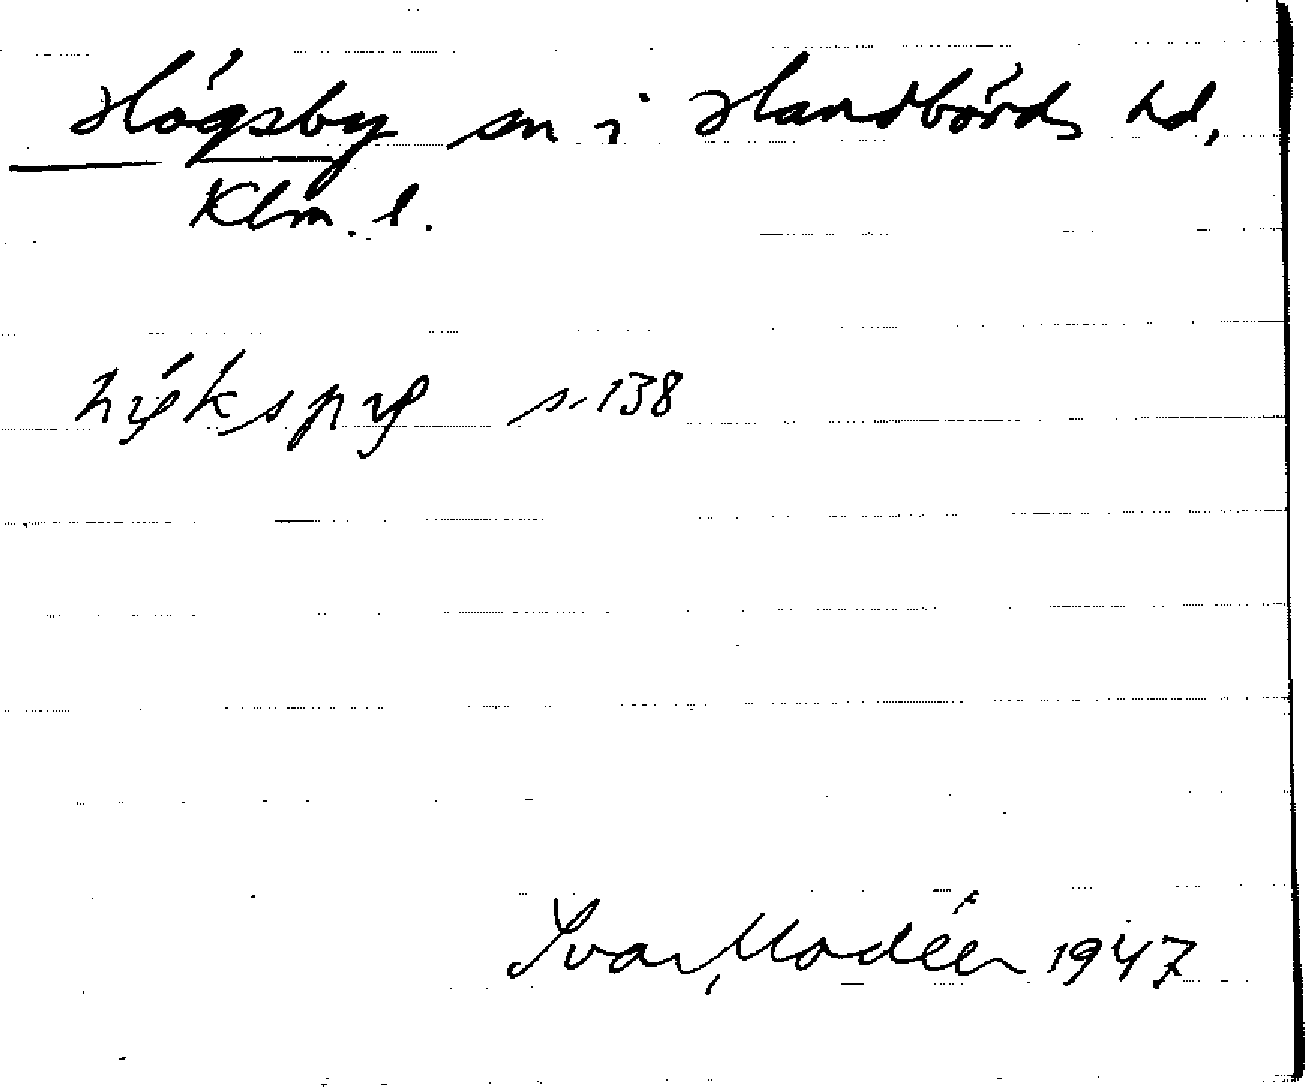 Högsby sn i Handbörds hd,
Klm. l.
s. 138
Ivar Modéer 1947